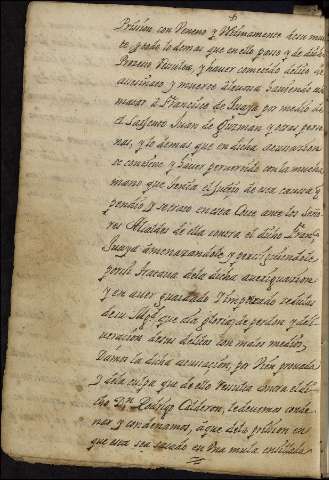 Prission con Veneno y Ultimamente de su muer
te, y todo lo demas que en ello paso y de dicho
Proceso Resulta, y haver cometido delito de
asesinato y muerte alevosa haciendo
matar à Francisco de Juaza por medio de
el Sargento Juan de Guzman y otras perso
nas, y lo demas que en dicha acusacion
se contiene y haver pervertido con la mucha
mano que tenia el juicio de esa causa q
pendio y se trato en esta Corte ante los Seño
res Alcaldes de ella contra el dicho Franco
Juaza amenazandole, y persiguiendole
por de la dicha averiguacion
y en aver ganado Cedulas
de su Magd que ala gloria, de perdon, y deli
veracion de sus delitos con malos medios,
Damos la dicha acusacion, por Vien provada
y dela culpa que de ello Resulta contra el di
cho Dn Rodrigo Calderon, le devemos conde
nar y condenamos, à que dela prission en
que esta sea sacado en Una mula ensillada